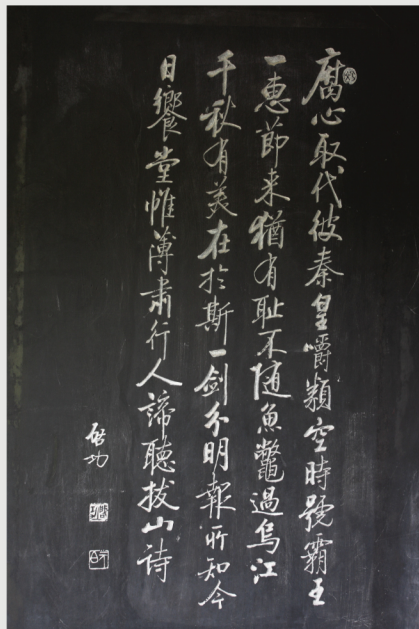 腐心取代彼秦皇嚼類空時號霸王
一惠節来猶有耻不随魚鼈過烏江
千秋有美在於斯一劍分明報所知今
日饗堂帷薄肅行人諦聽拔山詩
啟功